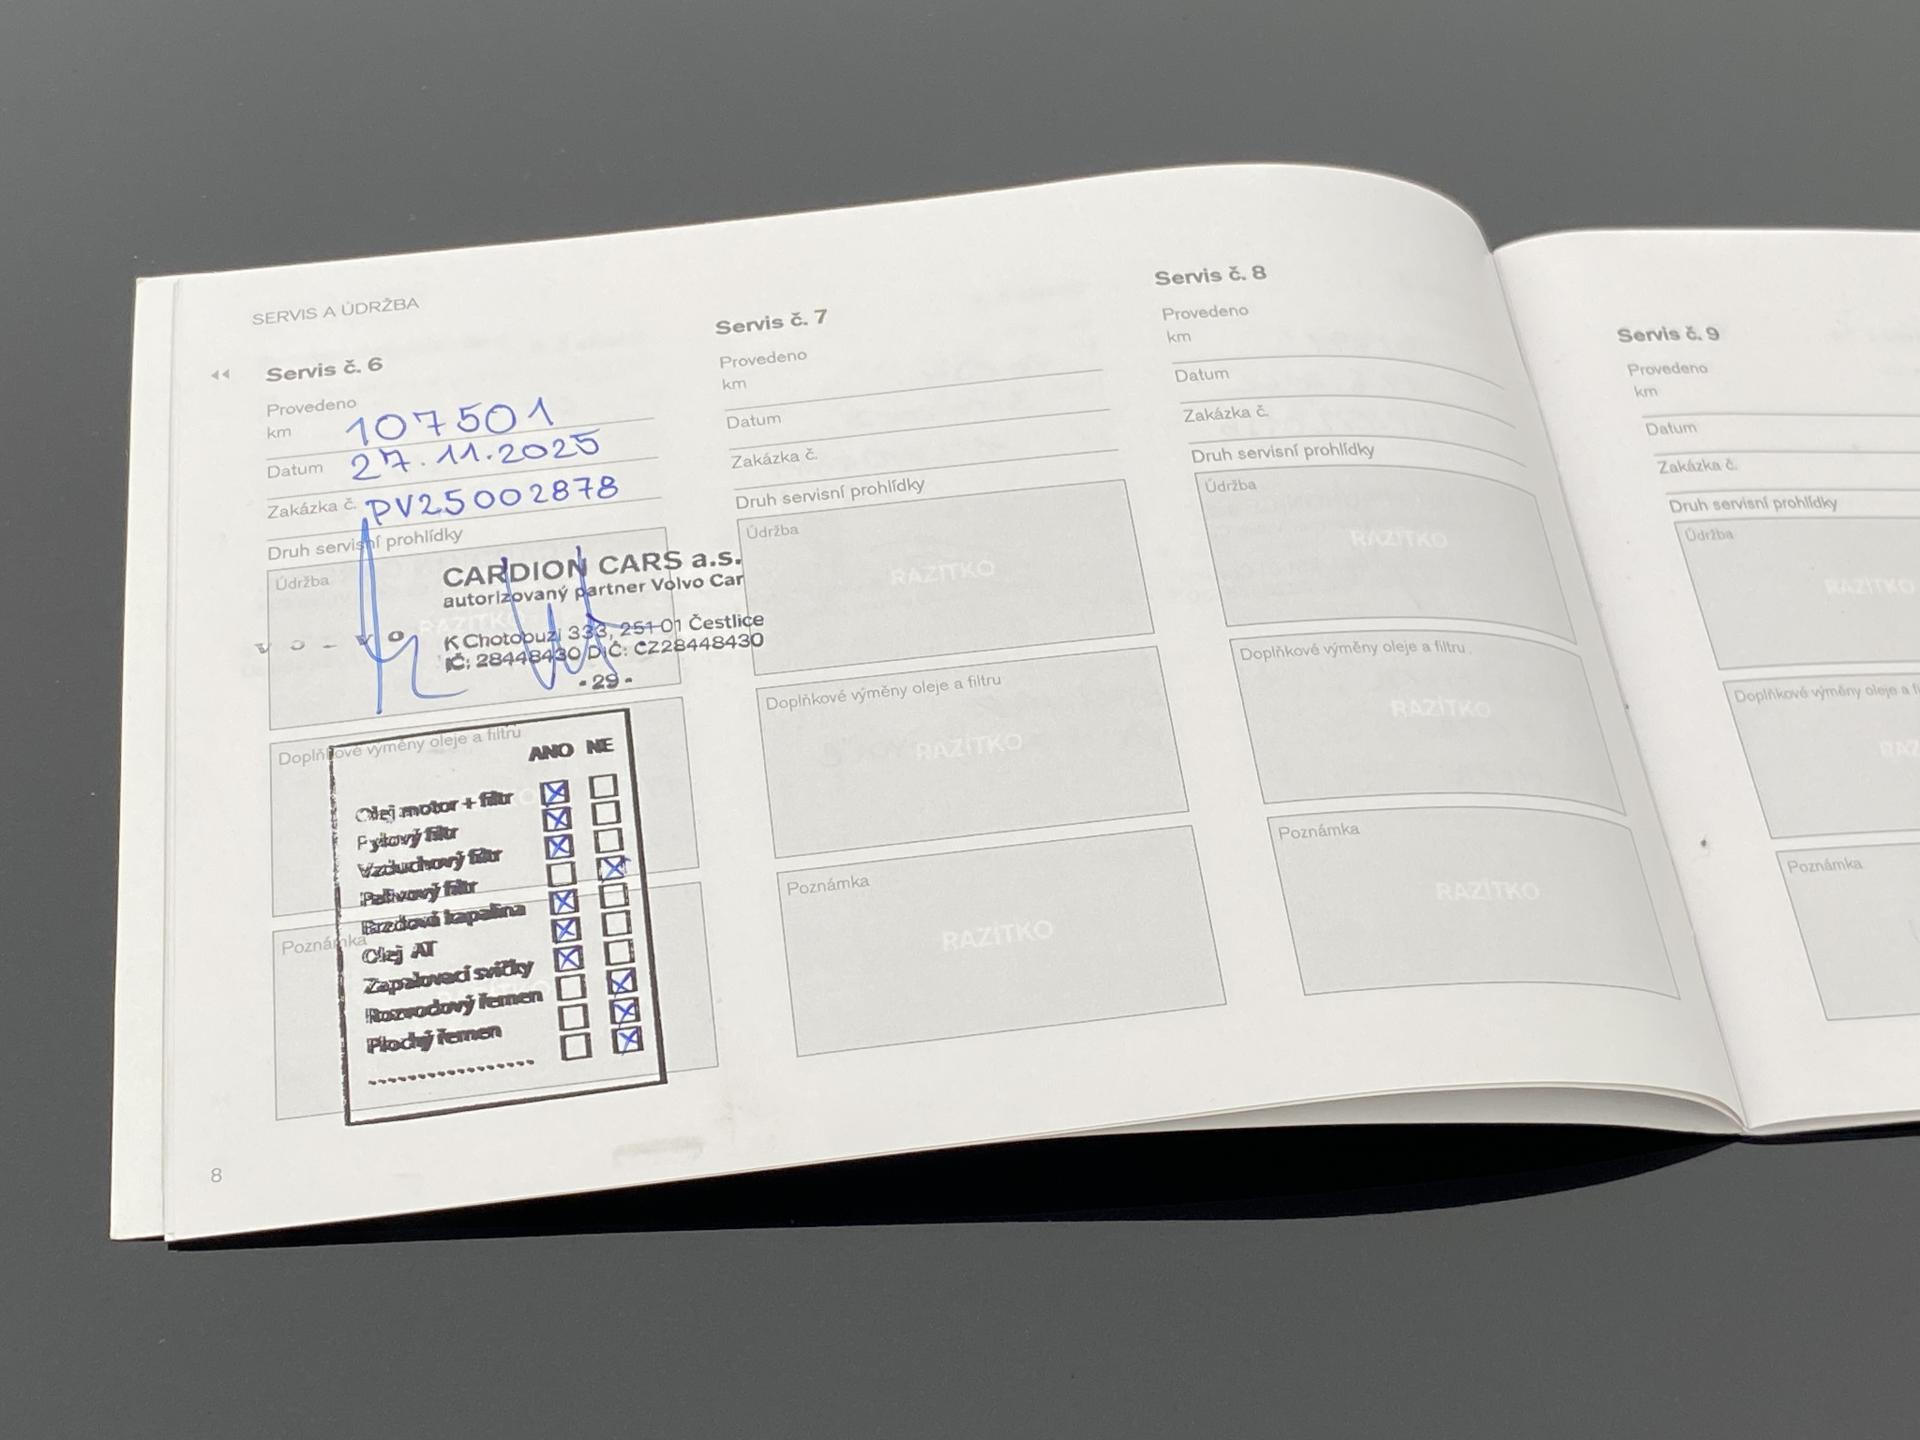 SERVIS A ÚDRŽBA
Servis č. 6
Provedeno
km 107501
Datum 27.11.2025
Zakázka č. PV25002878
Druh servisní prohlídky
Údržba
CARDION CARS a.s.
autorizovaný partner Volvo Car
K Chotobuzi 333, 251 01 Čestlice
IČ: 28448430 DIČ: CZ28448430
- 29 -
Doplňkové výměny oleje a filtru
ANO NE
Olej motor + filtr
Pylový filtr
Vzduchový filtr
Palivový filtr
Brzdová kapalina
Olej AT
Zapalovací svíčky
Rozvodový řemen
Plochý řemen
Poznámka
8
Servis č. 7
Provedeno
km
Datum
Zakázka č.
Druh servisní prohlídky
Údržba
RAZÍTKO
Doplňkové výměny oleje a filtru
RAZÍTKO
Poznámka
RAZÍTKO
Servis č. 8
Provedeno
km
Datum
Zakázka č.
Druh servisní prohlídky
Údržba
RAZÍTKO
Doplňkové výměny oleje a filtru
RAZÍTKO
Poznámka
RAZÍTKO
Servis č. 9
Provedeno
km
Datum
Zakázka č.
Druh servisní prohlídky
Údržba
RAZÍTKO
Doplňkové výměny oleje a
Poznámka